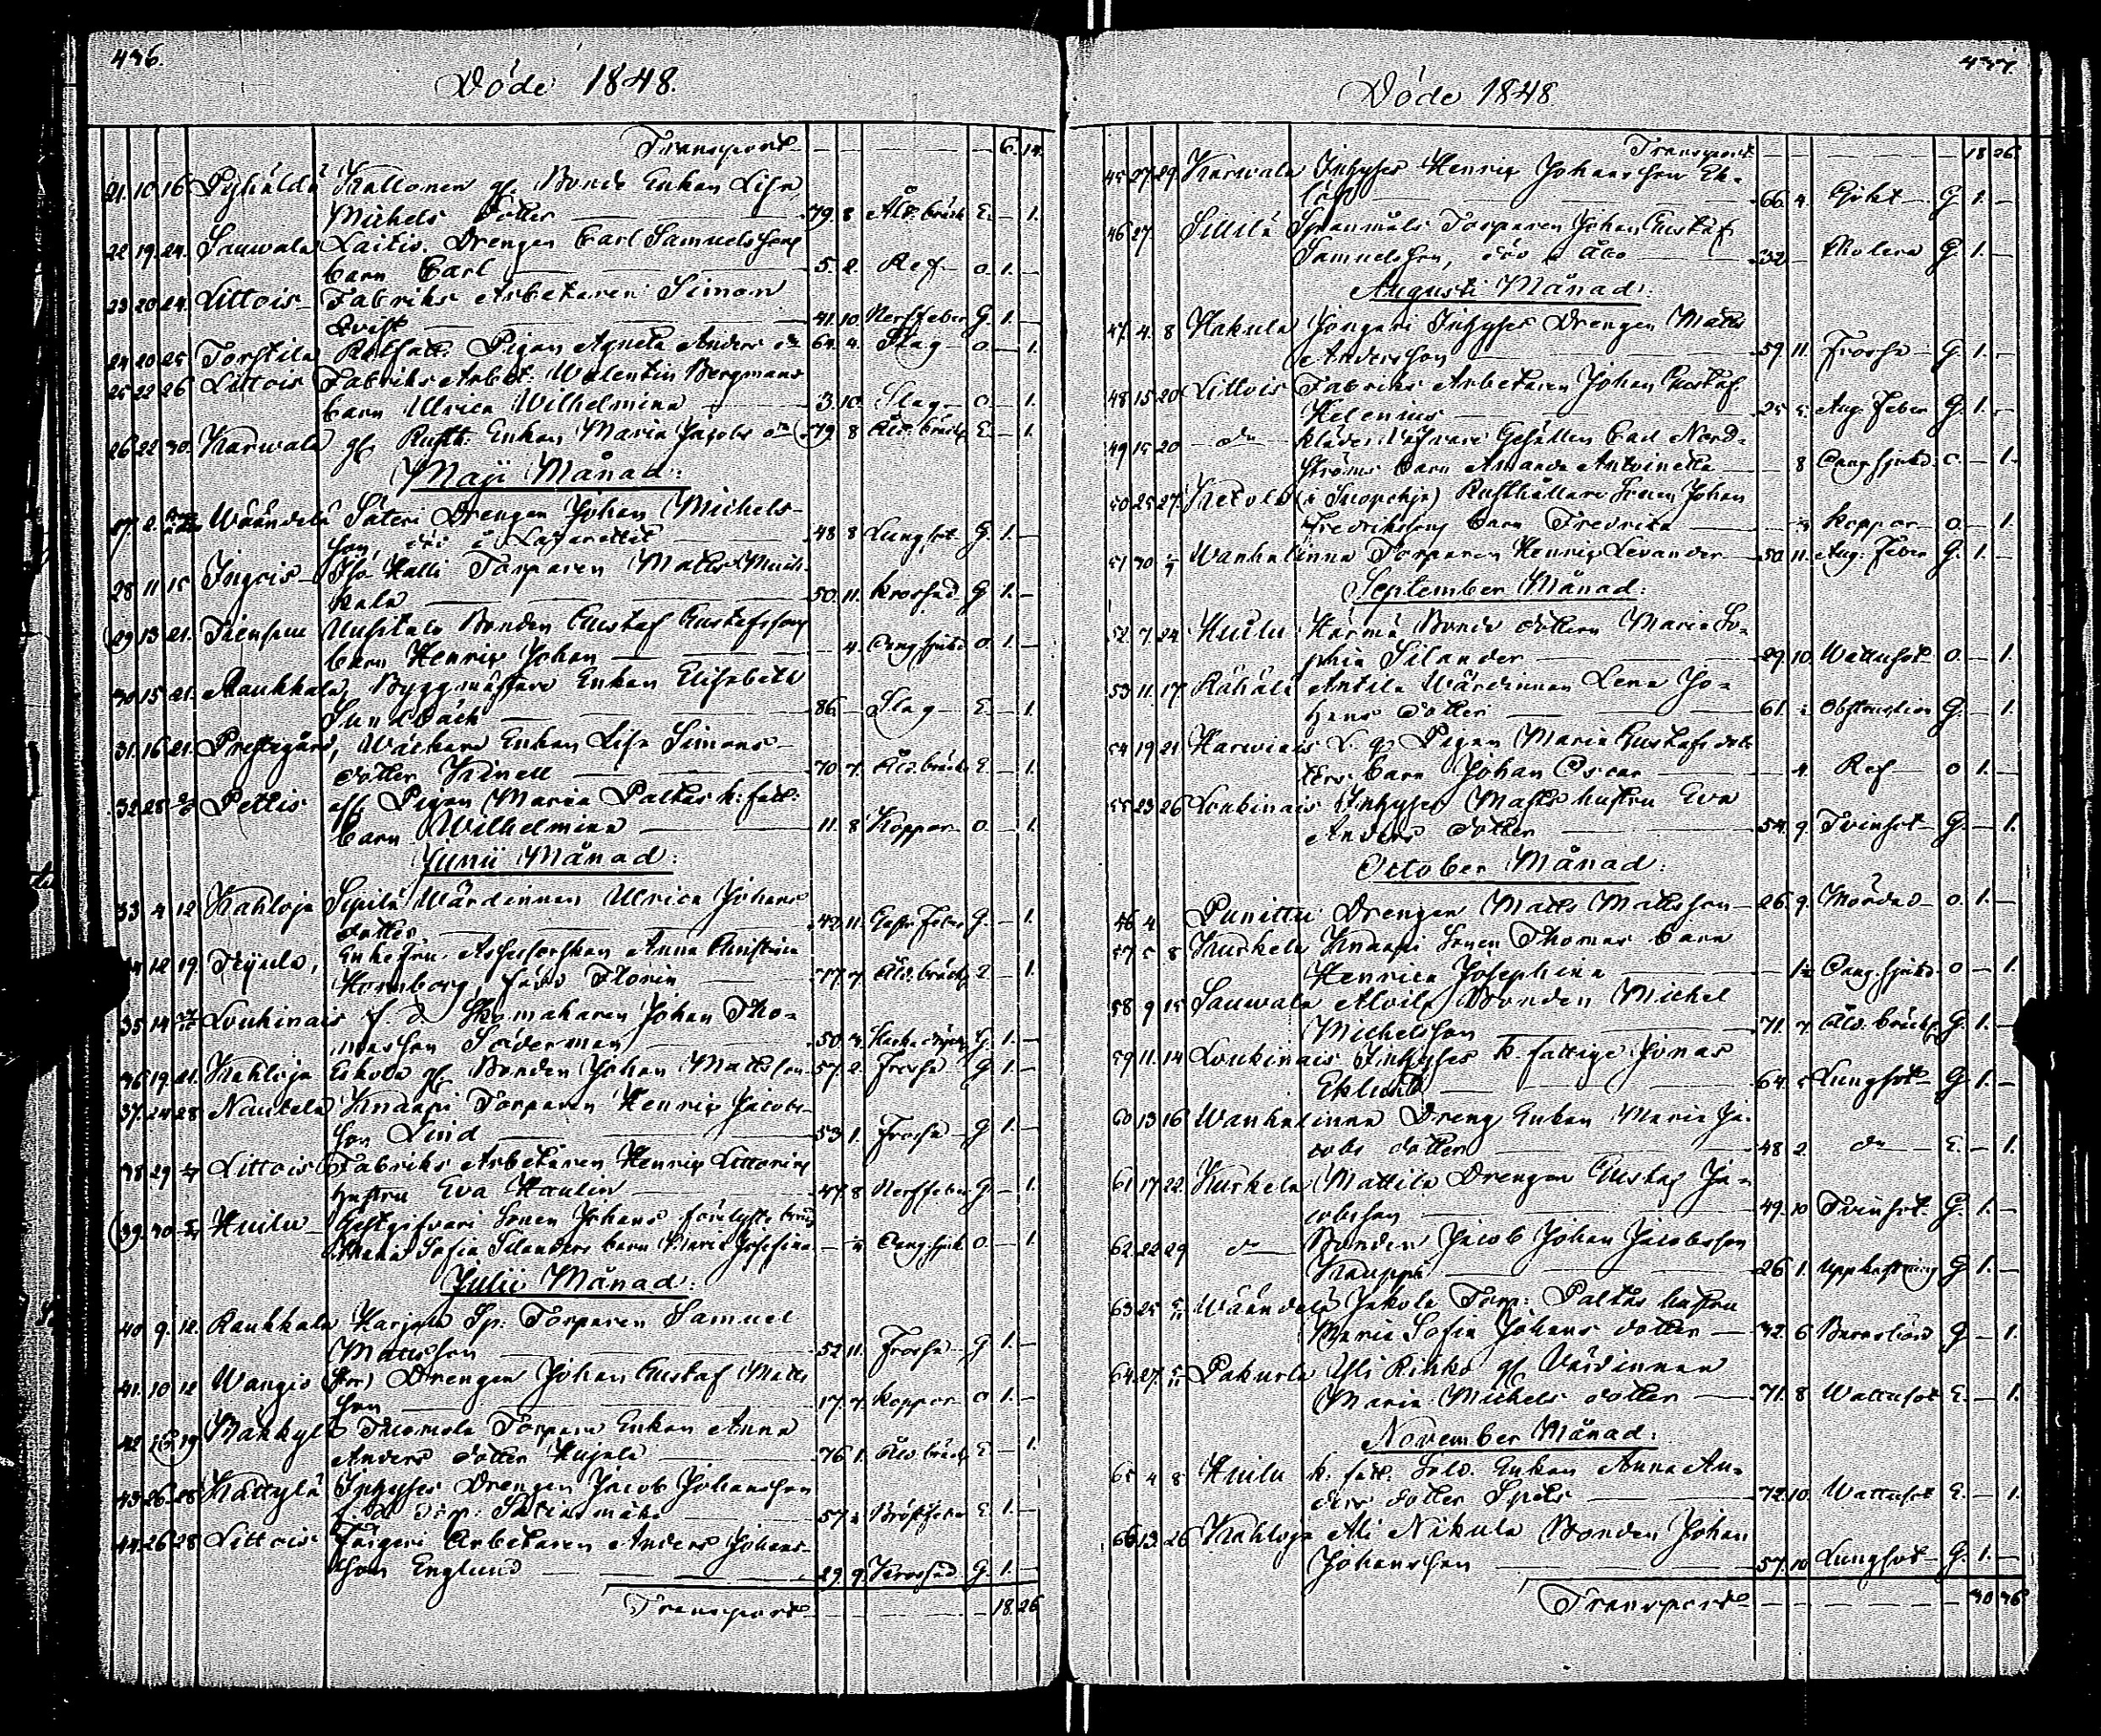 436.
Döde 1848.
Transport 6. 14.
21. 10 16 Pyhäldä Kallonen gl. Bonde Enkan Lisa
Michels dotter 79. 8 Åld. bräck E. — 1.
22 19. 24. Sauwala Laitis. Drengen Carl Samuelssons
barn Carl 5. 2. Ref o. 1. —
23 20 24. Littois Fabriks Arbetaren Simon
Qvist 41. 10. Nerffeber G. 1. —
24 20 25 Torstila Pigan Agneta Anders dr 64. 4. Slag o — 1.
25 22 26 Littois Fabriks Arbet: Walentin Bergmans
barn Ulrica Wilhelmina 3. 10. Slag o. — 1.
26 22 30. Karwala gl Rusth: Enkan Maria Jacobs dr 79 8 Åld. bräck E. — 1.
Maji Månad:
27. 2. Wäändelä Säteri Drengen Johan Michels-
son, död å Lazarettet 48 8 Lungsot G. 1. —
28 11 15 Ingois Iso Kalli Torparen Matts
50. 11. Krossad G 1. —
29 13 21. Uusitalo Bonden Gustaf Gustafssons
barn Henric Johan — 4. Qvag sjukd o. 1. —
30 15 21. Raukkala Byggmästare Enkan Elisabeth
Sundbäck 86. — Slag E. — 1.
31. 16 21. Prestgård, Wäktare Enkan Lisa Simons-
dotter Kinell 70 7. Åld. bräck E. — 1.
32 28 Pettis Pigan Maria
barn Wilhelmina 11. 8 Koppor o. — 1.
Junii Månad:
33 4 12 Kahloja Sipilä Wärdinnan Ulrica Johans
dotter 11. Feber G. — 1.
12 19. Enkefru Assessorskan Anna Christina
Hornborg, född Florin 77. 7. Åld. bräck — 1.
35 14 Loukinais f. d. Skomakaren Johan Tho-
masson Söderman 50. G. 1. —
36 19. 21. Kahloja Eskola gl Bonden Johan Mattsson 57. 2. Frossa G 1. —
37. 24 28 Nautela Knaapi Torparen Henric Jacobs-
son Lind 53 1. Frossa G 1. —
38 29 Littois Fabriks Arbetaren Henric
hustru Eva Haulin 47. 8 Nerffeber G — 1.
39. 30 Huilu Gästgifvare Sonen Johans
Maria Sofia Silanders barn Maria Josefina — Qvag sjuk o — 1.
Julii Månad:
40 9. 12. Raukkala Karjala Sp. Torparen Samuel
Mattsson 52 11. Frossa G 1. —
41. 10 12 Wangio Drengen Johan Gustaf Matts
son 17. 7. Koppor o 1. —
42 19 Mäkkylä Tuomola Torpare Enkan Anna
Anders dotter Hujala 76 1. Åld. bräck E — 1.
43 26 28 Kättylä Inhyses Drengen Jacob Johansson
57 Bröstfeber E 1. —
44 26 28 Littois Färgeri Arbetaren Anders Johans-
son Englund 29. 9. Krossad G 1. —
Transport 18. 26
437.
Döde 1848
Transport 18 26.
45 27 29 Karwala Inhyses Henric Johansson Ek-
löf 66. 4. Gikt G. 1. —
46 27. Sillilä Spanmåls Torparen Johan Gustaf
Samuelsson, död i Åbo 32 — Cholera G. 1. —
Augusti Månad:
47. 4. 8 Hakula Inhyses Drengen Matts
Andersson 59 11. Frossa G. 1. —
48 15 20 Littois Fabriks Arbetaren Johan Gustaf
Helenius 25 5. Aug. feber G. 1. —
49 15 20 do Gesällen Carl Nord-
ströms barn Amanda Antoinetta — 8 Qvag sjukd. o. — 1.
50 25 27. Ketola Rusthållare Sonen Johan
Fredrikssons barn Fredrika Koppor o. — 1.
51 30 Wanhalinna Torparen Henric Levander 50. 11. Aug: feber G. 1. —
September Månad:
52. 7. 24 Huilu Härmä Bonde dottern Maria So-
phia Silander 29 10. Wattusot o. — 1.
53 11. 17 Rähälä Antila Wärdinnan Lena Jo-
hans dotter 61. Obstruction G. — 1.
54 19 21 Harwiais Pigan Maria Gustafs dot-
ters barn Johan Oscar — 4. Ref o 1. —
55 23 26 Loukinais Inhyses Matts hustru Eva
Anders dotter 54. 9. Tvinsot G. — 1.
October Månad:
56 4 Punittu Drengen Matts Mattsson 26. 9. Mördad o. 1. —
57 5 8 Kurkela Knaapi Sonen Thomas barn
Henrica Josephina — 1½ Qvag. sjukd. o — 1.
58 9 15 Sauwala Alvila Bonden Michel
Michelsson 71. 7 Åld. bräck G. 1. —
59 11. 14 Loukinais Inhyses k. fattige Jonas
Eklund 64. 5 Lungsot G 1. —
60 13 16 Wanhalinna Dreng Enkan Maria Ja-
cobs dotter 48 2. do E. — 1.
61 17 22 Kurkela Mattila Drengen Gustaf Ja-
cobsson 49. 10 Tvinsot G. 1. —
62. 22 29 do Bonden Jacob Johan Jacobsson
Kauppi 26 1. Upphostning G 1. —
63 25 5/11 Wäändelä Jakola Torp: hustru
Maria Sofia Johans dotter 32. 6 Barnsbörd G — 1.
64. 27. 5/11 Pakurla Yli Kirkko gl Värdinnan
Maria Michels dotter 71. 8 Wattusot E. — 1.
November Månad:
65 4 8 Huilu k. fatt. Sold. Enkan Anna An-
ders dotter Spets 72. 10. Wattusot E. — 1.
66 13 26 Kahloja Ali Nikula Bonden Johan
Johansson 57. 10 Lungsot G. 1. —
Transport 30 36